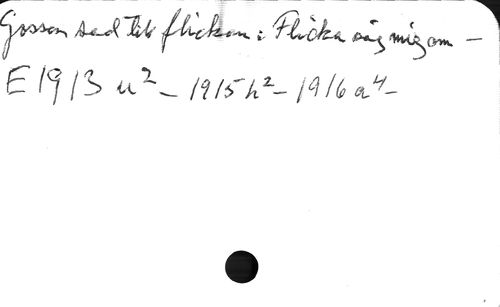 Gossen sad til flickan: Flicka säg mig om —
E 1913 u² — 1915 h² — 1916 a⁴ —